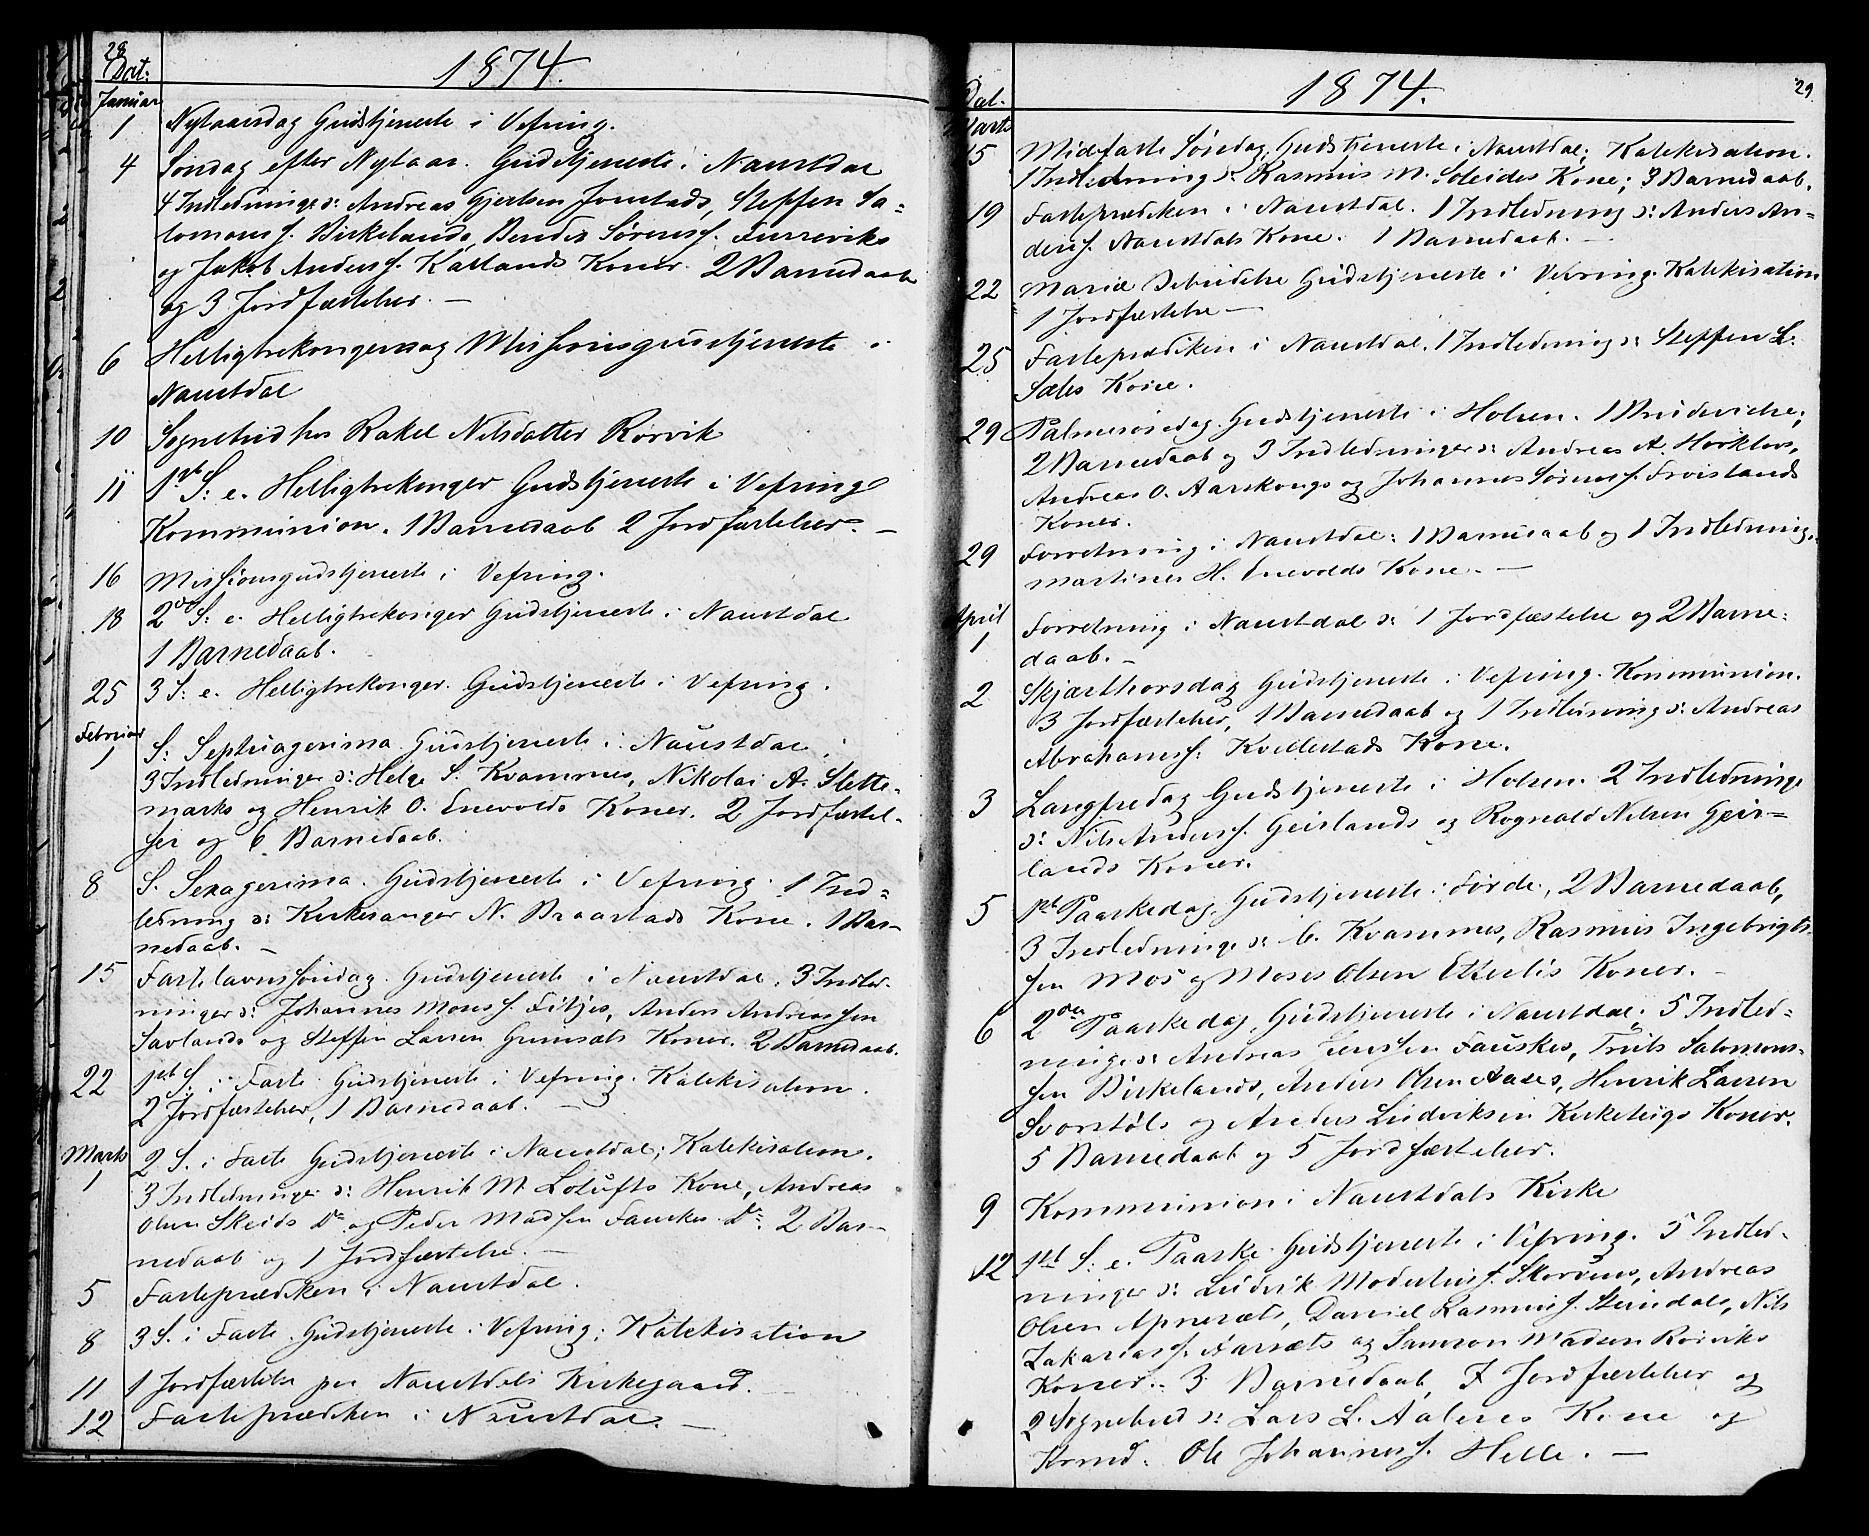 28
Dat:
1874.
Januar
1 Nytaarsdag Gudstjeneste i Vefring.
4 Søndag efter Nytaar. Gudstjeneste i Naustdal
4 Indledninger ɔ: Andreas Gjertsen Jonstads, Steffen Sa=
lomons. Birkelands, Bendix Sørens. Furreviks
og Jakob Anders. Kallands Koner. 2 Barnedaab
og 3 Jordfæstelser. —
6 Helligtrekongersdag Missionsgudstjeneste i
Naustdal
10 Sognebud hos Rakel Nilsdatter Rørvik
11 1ste S: e. Helligtrekonger Gudstjeneste i Vefring
Kommunion. 1 Barnedaab 2 Jordfæstelser. —
16 Missionsgudstjeneste i Vefring.
18 2den S: e. Helligtrekonger Gudstjeneste i Naustdal
1 Barnedaab.
25 3 S: e. Helligtrekonger. Gudstjeneste i Vefring.
Februar
1 S: Septuagesima. Gudstjeneste i Naustdal
3 Indledninger ɔ: Helge S. Kvamnes, Nikolai A. Slette=
marks og Henrik O. Enevolds Koner. 2 Jordfæstel=
ser og 6 Barnedaab.
8 S. Sexagesima. Gudstjeneste i Vefring. 1 Ind=
ledning ɔ: Kirkesanger N. Braastads Kone. 1 Bar=
nedaab. —
15 Fastelavnssøndag. Gudstjeneste i Naustdal. 3 Indled=
ninger ɔ: Johannes Moses. Fitjes, Anders Andreassen
Savlands og Steffen Larsen Grimsæts Koner. 2 Barnedaab.
22 1ste S. i Faste. Gudstjeneste i Vefring. Katekisation.
2 Jordfæstelser, 1 Barnedaab. —
Marts
1 2 S. i Faste Gudstjeneste i Naustdal; Katekisation.
3 Indledninger ɔ: Henrik M. Lotufts Kone, Andreas
Olsen Skeids Do og Peder Madsen Fauskes Do. 2 Bar=
nedaab og 1 Jordfæstelse. —
5 Fasteprædiken i Naustdal.
8 3 S. i Faste. Gudstjeneste i Vefring; Katekisation
11 1 Jordfæstelse paa Naustdals Kirkegaard. —
12 Fasteprædiken i Naustdal. —
29
Dat.
1874.
Marts
15 Midfaste Søndag, Gudstjeneste i Naustdal; Katekisation.
1 Indledning ɔ: Rasmus M. Soleides Kone; 3 Barnedaab.
19 Fasteprædiken i Naustdal. 1 Indledning ɔ: Anders An=
ders. Naustdals Kone. 1 Barnedaab. —
22 Mariæ Bebudelse Gudstjeneste i Vefring. Katekisation
1 Jordfæstelse —
25 Fasteprædiken i Naustdal. 1 Indledning ɔ: Steffen L.
Sæles Kone.
29 Palmesøndag. Gudstjeneste i Holsen. 1 Brudevielse,
2 Barnedaab og 3 Indledninger ɔ: Andreas A. Horklevs,
Andreas O. Aarskongs og Johannes Sørens. Frøislands
Koner.
29 Forretning i Naustdal: 1 Barnedaab og 1 Indledning,
Martines H. Enevolds Kone. —
April
1 Forretning i Naustdal ɔ: 1 Jordfæstelse og 2 Barne=
daab. —
2 Skjærthorsdag Gudstjeneste i Vefring. Kommunion.
3 Jordfæstelser, 1 Barnedaab og 1 Indledning ɔ: Andreas
Abrahams. Kvellestads Kone.
3 Langfredag Gudstjeneste i Holsen. 2 Indledninger
ɔ: Nils Anders. Geirlands og Rognald Nilsen Geir=
lands Koner.
5 1ste Paaskedag. Gudstjeneste i Førde, 2 Barnedaab,
3 Indledninger ɔ: C. Kvamnes, Rasmus Ingebrigt=
sen Mos og Moses Olsen Etterlis Koner. —
6 2den Paaskedag, Gudstjeneste i Naustdal. 5 Indled=
ninger ɔ: Andreas Jensen Fauskes, Truls Salomon=
sen Birkelands, Anders Olsen Aases, Henrik Larsen
Svorstøls og Anders Ludviksen Kirketeigs Koner.
5 Barnedaab og 5 Jordfæstelser.
9 Kommunion i Naustdals Kirke
12 1ste S. e. Paaske. Gudstjeneste i Vefring. 5 Indled=
ninger ɔ: Ludvik Modestus. Skorvens, Andreas
Olsen Apnesæts, Daniel Rasmus. Steindals, Nils
Zakarias. Aarsæts og Samson Madsen Rørviks
Koner. 3 Barnedaab, 7 Jordfæstelser og
2 Sognebud ɔ: Lars L. Aalens Kone og
Ole Johannes. Helle. —